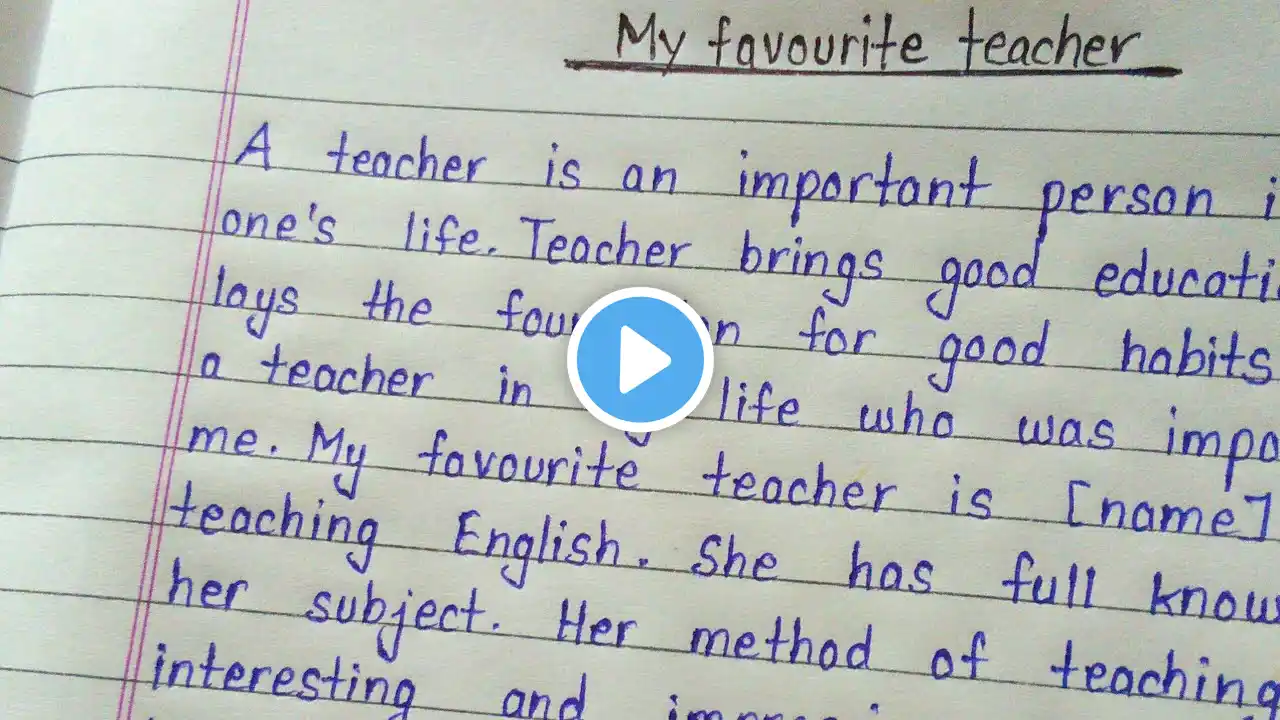 My favourite teacher
A teacher is an important person i
one's life. Teacher brings good educati
lays the for good habits
a teacher in life who was impo
me. My favourite teacher is [name]
teaching English. She has full know
her subject. Her method of teaching
interesting and